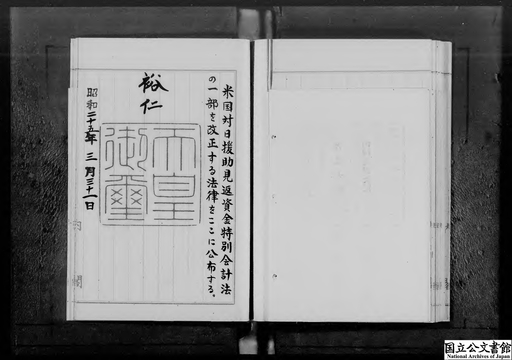 米国対日援助見返資金特別会計法
の一部を改正する法律をここに公布する。
裕仁
天皇
御璽
昭和二十五年三月三十一日
内閣
国立公文書館
National Archives of Japan